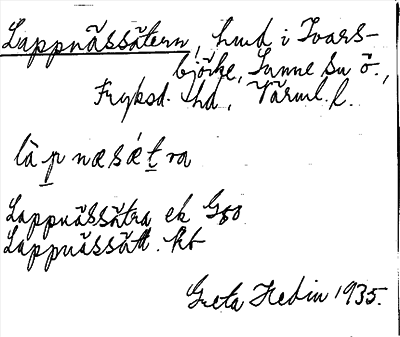 Lappnässätern, hmd i Ivars-
björke, Sunne sn ö.,
Fryksd. hd, Värml. l.
là p næsætra
Lappnässätra ek G50
Lappnässätt. kb
Greta Hedin 1935.